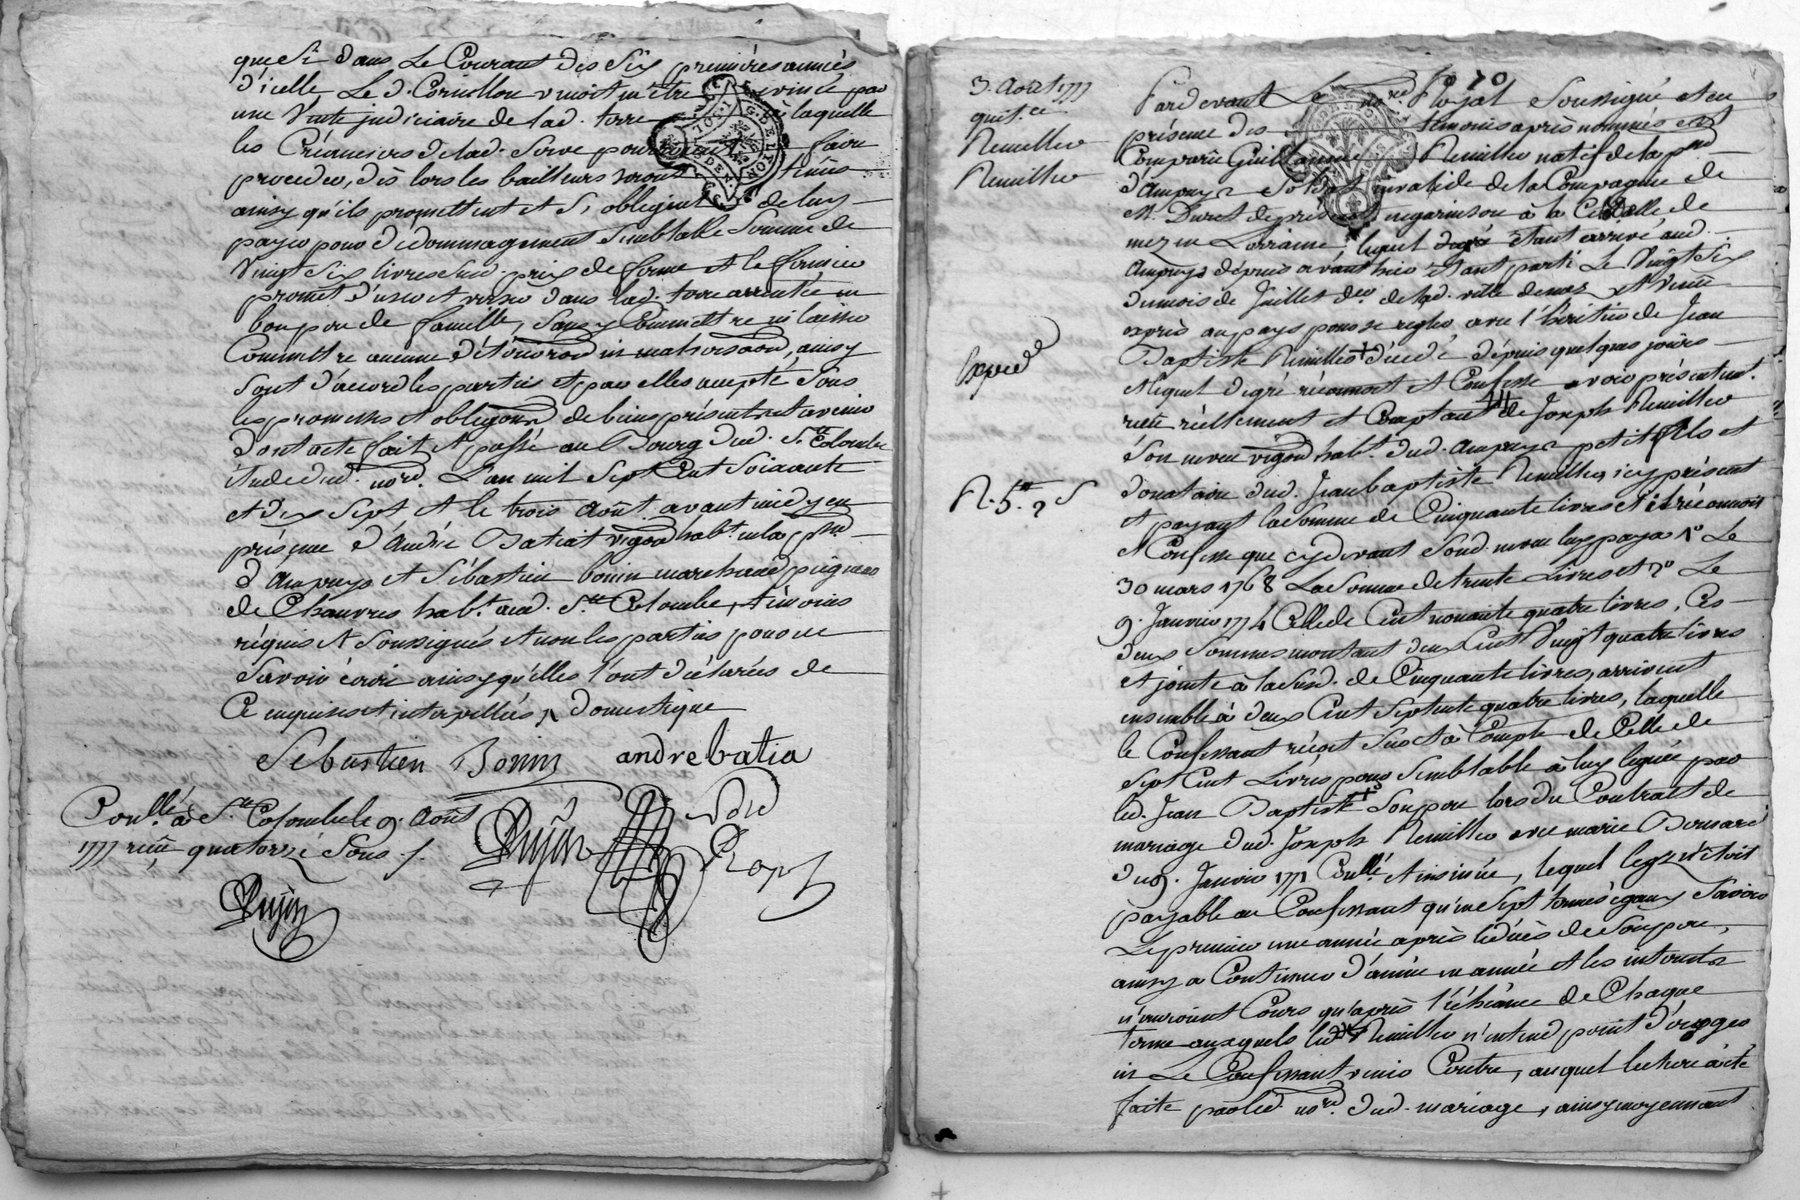 que si dans Le Courant des six premières années
d'icelle Le d. Cornillon venoit m'être evincé par
une Vente judiciaire de lad. terre à laquelle
les Créanciers de lad. Serve pourroient faire
proceder, dès lors les bailleurs seront tenus
ainsy qu'ils promettent et s'obligent de luy
payer pour dédommagement semblable Somme de
Vingt Six livres sud. prix de ferme et le fermier
promet d'user et verser dans lad. terre arrentée en
bon pere de famille, sans y Commettre ni laisser
Commettre aucune déterioraon ni malversaon, ainsy
sont d'accord les parties et par elles accepté sous
les promesses et obligaons de biens présents et avenir
dont acte fait et passé au Bourg dud. Ste Colombe
étude dud. nore. L'an mil Sept Cent Soixante
et dix Sept et le trois Août avant midy en
présence d'André Batiat vigon habt. en la psse
d'Ampuys et Sébastien bonin marchand peigneur
de Chanvres habt. aud. Ste Colombe, témoins
réquis et soussignés et non les parties pour ne
savoir écrire ainsy qu'elles l'ont déclarées de
Ce enquises et interpellées, domestique
Sebastien Bonin andre batia
Conllé à Ste Colombe le 9. Août
1777 reçu quatorze sous
Dujin
Dujin
3. Août 1777
quitce
Remillier
Remillier
Expedé
R. 5tt 2 s
70
Pardevant Le nore Royal Soussigné et en
présence des témoins après nommés est
Comparû Guillaume Remillier natif de la psse
d'Ampuys Soldat invalide de la Compagnie de
M. Duret de présent en garnison à la Citadelle de
mez en Lorraine, lequel étant arrivé aud.
Ampuys dépuis avant hier étant parti Le Vingt Six
du mois de Juillet der. de lad. ville de mez et venû
exprès au pays pour se regler avec l'héritier de Jean
Baptiste Remillier décedé dépuis quelques jours
et lequel de gré réconnoît et Confesse avoir présentemt.
reçu réellement et Comptant de Joseph Remillier
son neveu vigon habt. dud. Ampuys petit fils et
donataire dud. Jean baptiste Remillier, icy présent
et payant la Somme de Cinquante livres et il réconnoit
et Confesse que cydevant sond. neveu luy paya 1º Le
30 mars 1768 La Somme de trente Livres et 2º Le
9. Janvier 1774 Celle de Cent nonante quatre livres, Ces
deux Sommes montant deux Cent Vingt quatre livres
et jointe à la susd. de Cinquante livres, arrivent
ensemble à deux Cent Septente quatre livres, laquelle
le Confessant réçoit sus et à Compte de Celle de
Sept Cent Livres pour Semblable à luy leguée par
led. Jean Baptiste Son pere lors du Contract de
mariage dud. Joseph Remillier avec marie Bonnard
du 9. Janvier 1771 Conllé et insinué, lequel legs n'étoit
payable au Confessant qu'en Sept termes égaux Savoir
Le premier une année après le décès de Son pere,
ainsy a Continuer d'année en année et les interests
n'auroient Cours qu'après l'échéance de Chaque
terme auxquels led. Remillier n'entend point déroger
ni Le Confessant venir Contre, auquel lecture a été
faite par led. nore. dud. mariage, ainsy moyennant